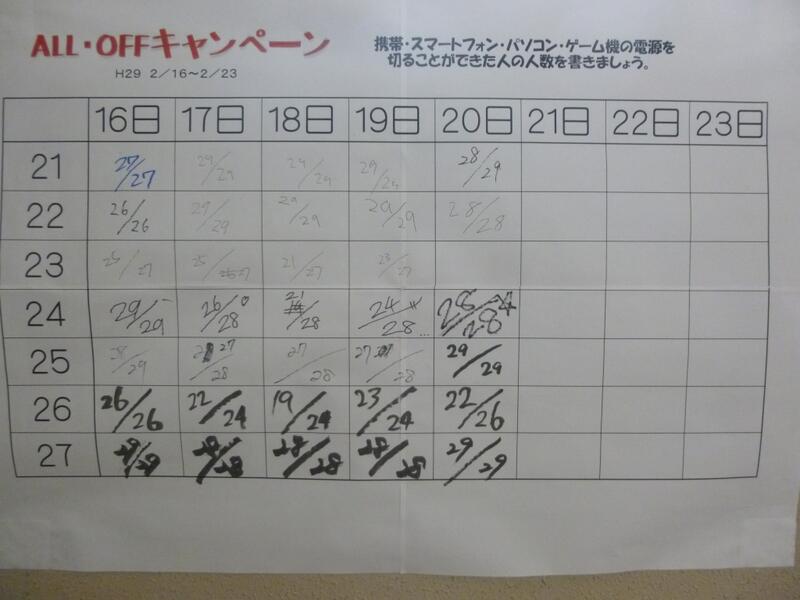 ALL・OFFキャンペーン
H29 2/16～2/23
携帯・スマートフォン・パソコン・ゲーム機の電源を
切ることができた人の人数を書きましょう。
16日 17日 18日 19日 20日 21日 22日 23日
21 27/27 29/29 29/29 29/29 28/29
22 26/26 29/29 29/29 29/29 28/28
23 25/27 25/27 21/27 23/27
24 29/29 26/28 21/28 24/28 28/28
25 28/29 27/28 27/28 27/28 29/29
26 26/26 22/24 19/24 23/24 22/26
27 29/29 28/28 28/28 28/28 29/29